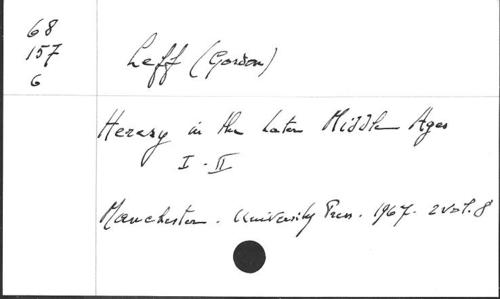 68
157
6
Leff (Gordon)
Heresy in the Later Middle Ages
I - II
Manchester. University Press. 1967. 2 vol. 8